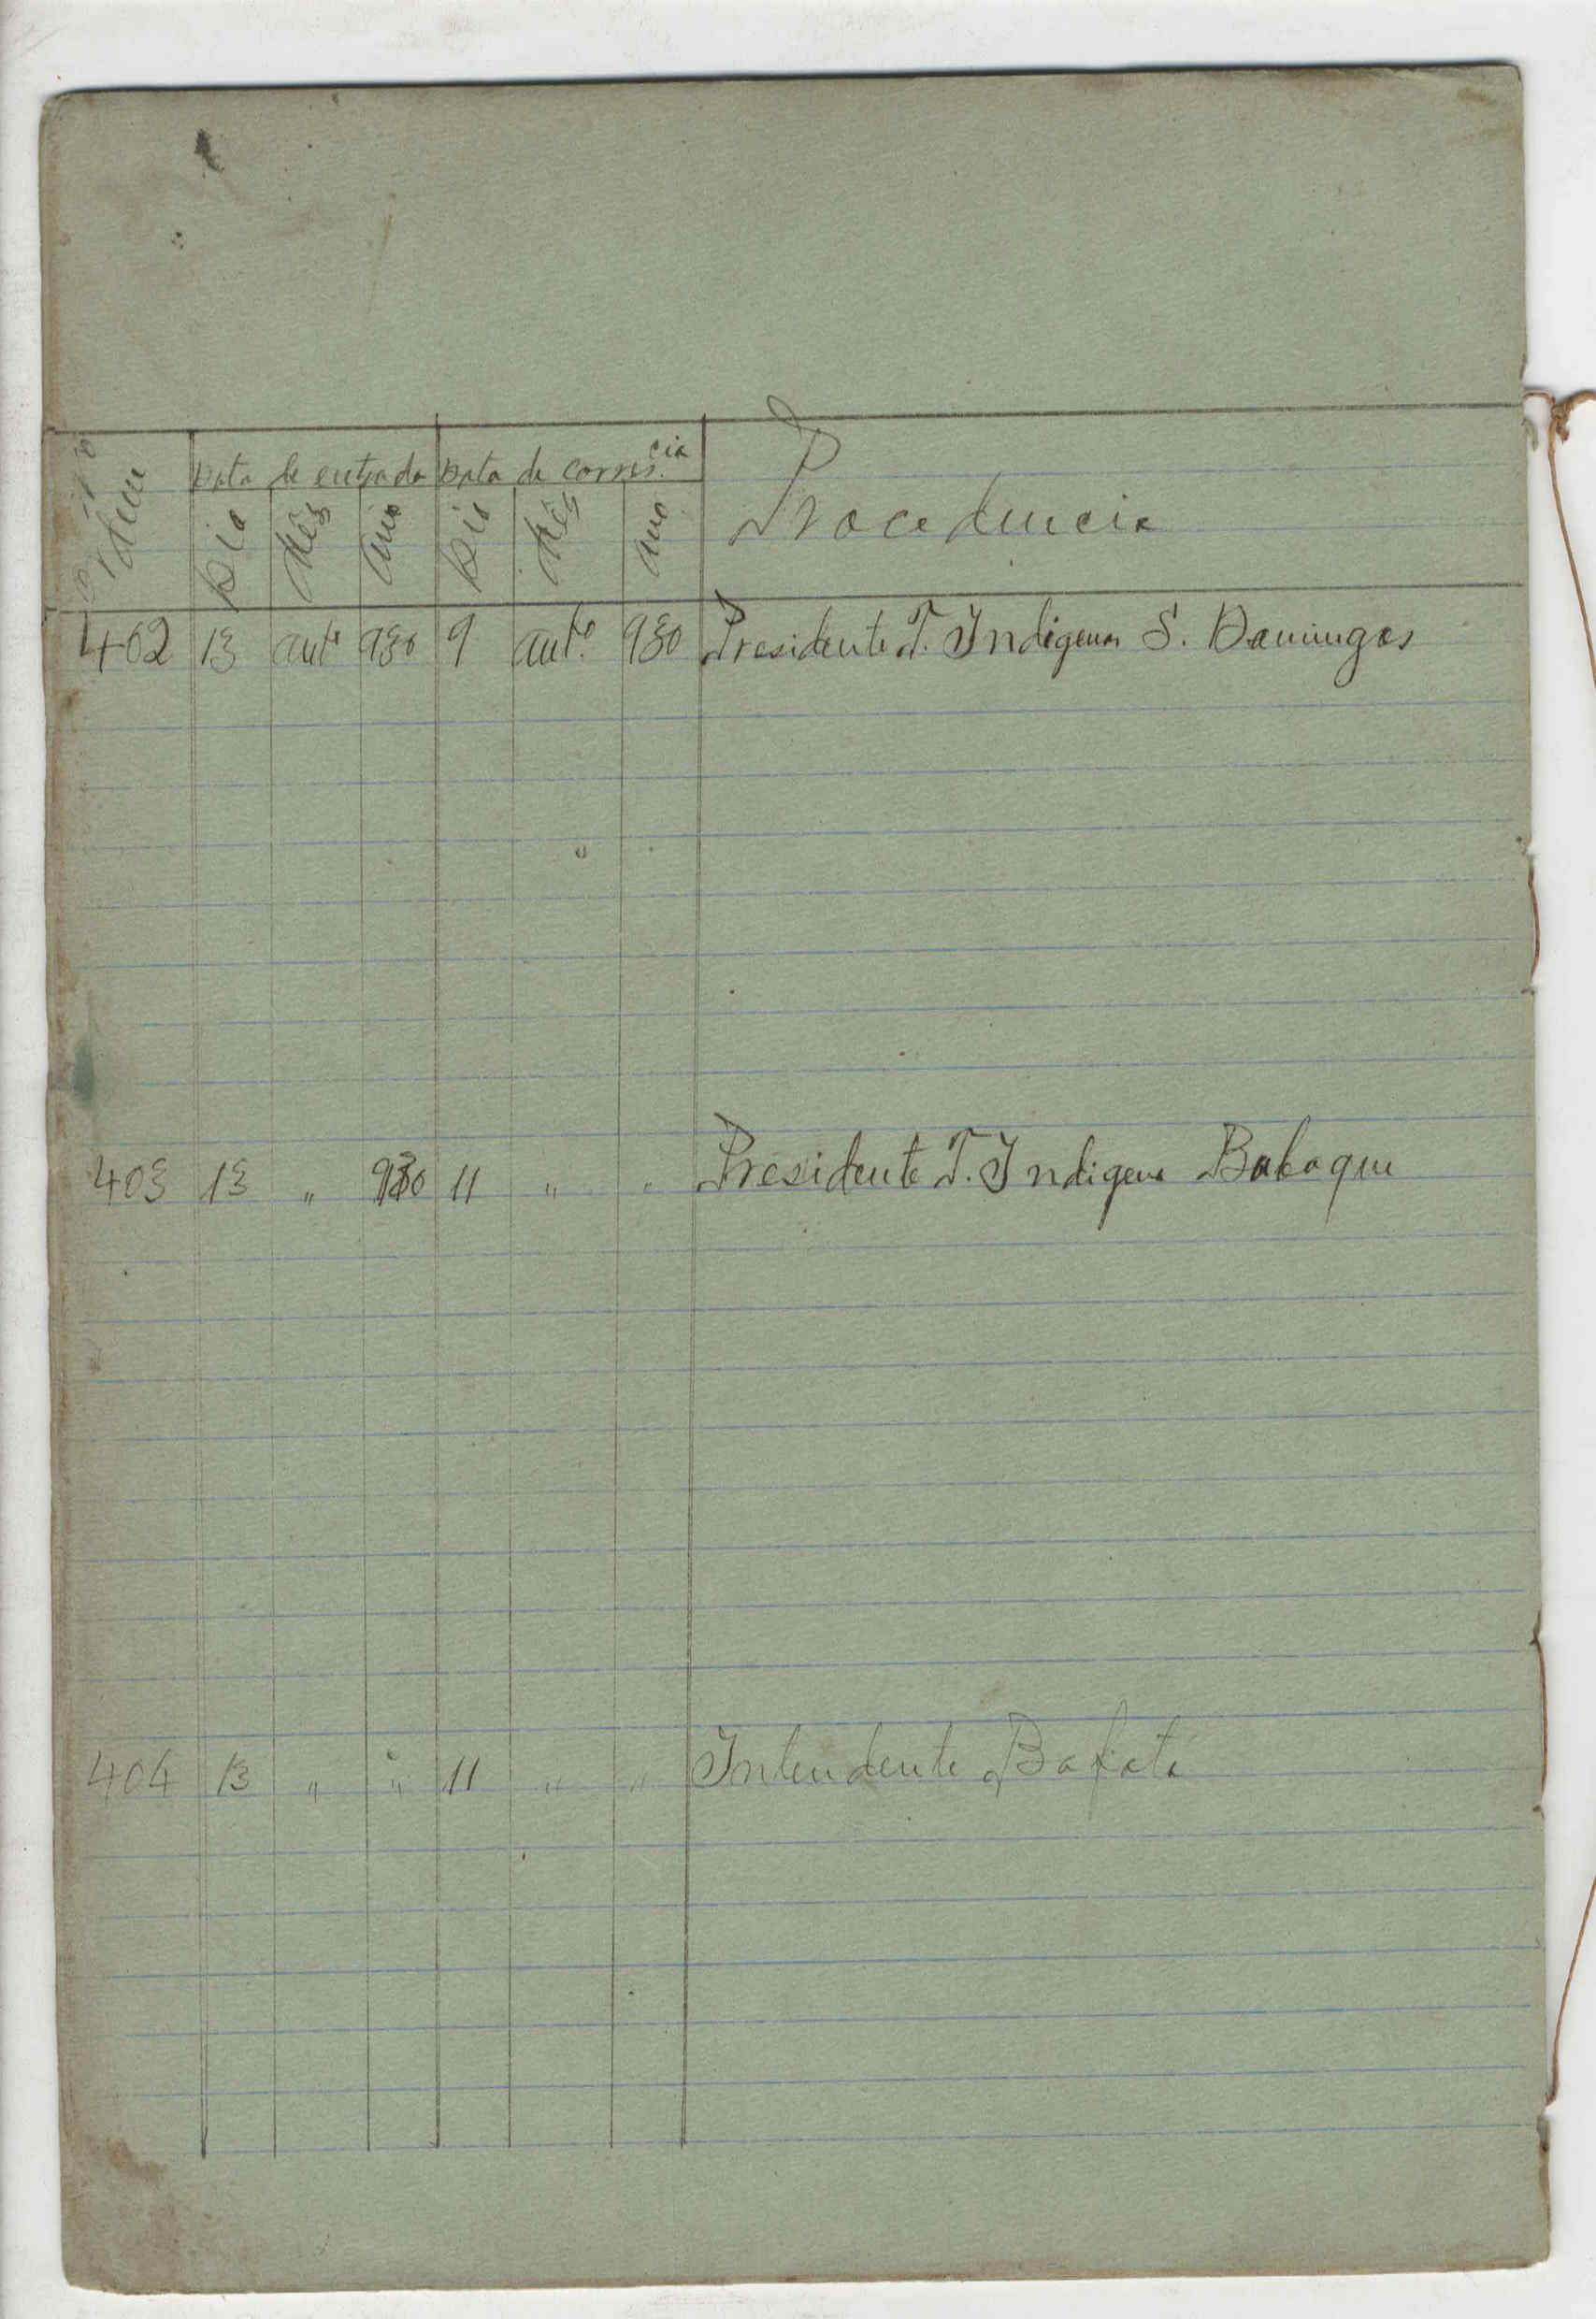 Ordem Data de entrada Data de corres.cia Procedencia
Dia Mês Ano Dia Mês Ano
402 13 out.º 930 9 out.º 930 Presidente T. Indigena S. Domingos
403 13 " 930 11 " " Presidente T. Indigena Bubaque
404 13 " " 11 " " Intendente Bafatá